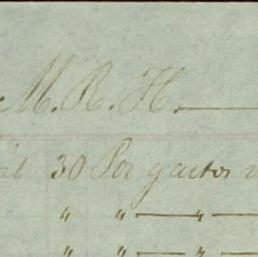 M. R. H.
30 Por gactor
" " "
" " "